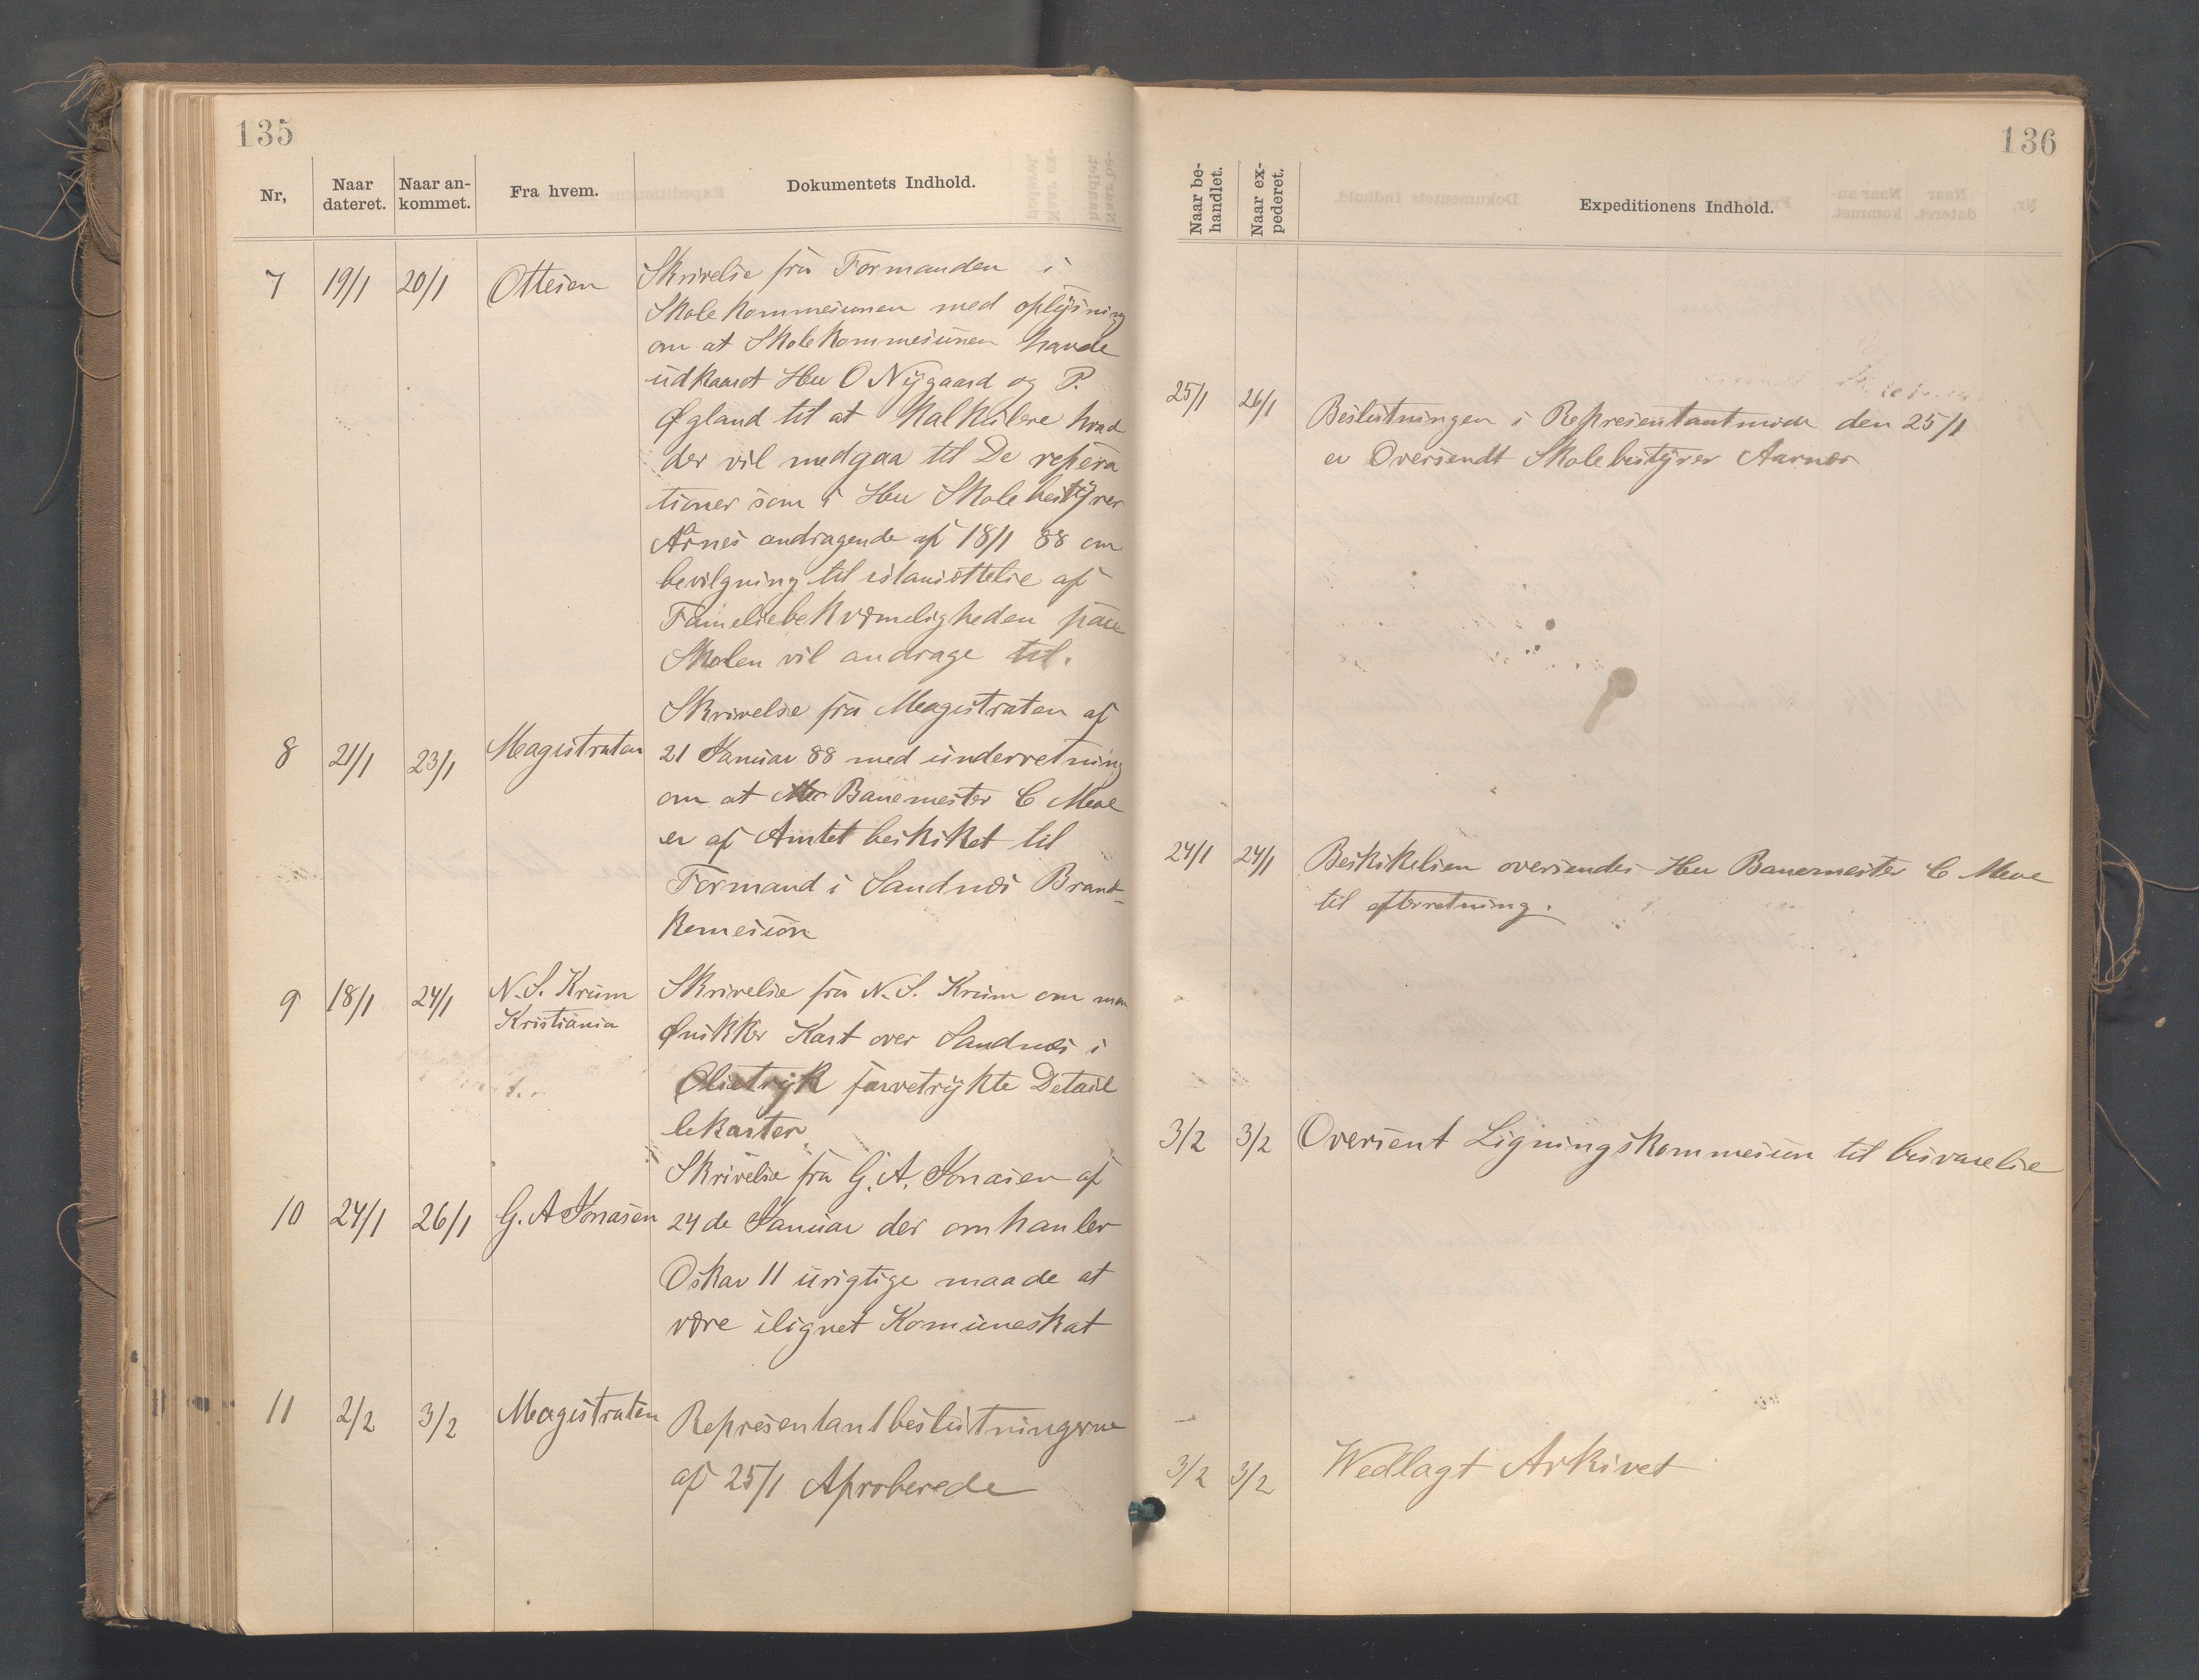 135
Nr,
Naar dateret.
Naar ankommet.
Fra hvem.
Dokumentets Indhold.
7 19/1 20/1 Ottesen
Skrivelse fra Formanden i
Skolekommesionen med oplysning
om at Skolekommesionen havde
udkaaret Herr O Nygaard og P.
Øgland til at kalkulere hvad
der vil medgaa til De repera
tioner som i Herr Skolebestyrer
Aarnes andragende af 18/1 88 om
bevilgning til istansættelse af
Fameliebekvæmeligheden paa
Skolen vil andrage til.
8 21/1 23/1 Magistraten
Skrivelse fra Magistraten af
21 Januar 88 med underretning
om at Banemester C Meve
er af Amtet beskiket til
Formand i Sandnæs Brand-
komesion
9 18/1 24/1 N. S. Krum
Kristiania
Skrivelse fra N. S. Krum om man
Ønskker Kart over Sandnæs i
Olietryk farvetrykte Detail
lekarter.
10 24/1 26/1 G. A Jonasen
Skrivelse fra G. A. Jonasen af
24de Januar der omhanler
Oskar II urigtige maade at
være ilignet Komuneskat
11 2/2 3/2 Magistraten
Representantbeslutningerne
af 25/1 Aproberede
136
Naar behandlet.
Naar expederet.
Expeditionens Indhold.
25/1 26/1 Beslutningen i Representantmøde den 25/1
er Oversendt Skolebestyrer Aarnes
24/1 24/1 Beskikelsen oversendes Herr Banemester C Meve
til efterretning.
3/2 3/2 Oversent Ligningskommesion til besvarelse
3/2 3/2 Wedlagt Arkivet